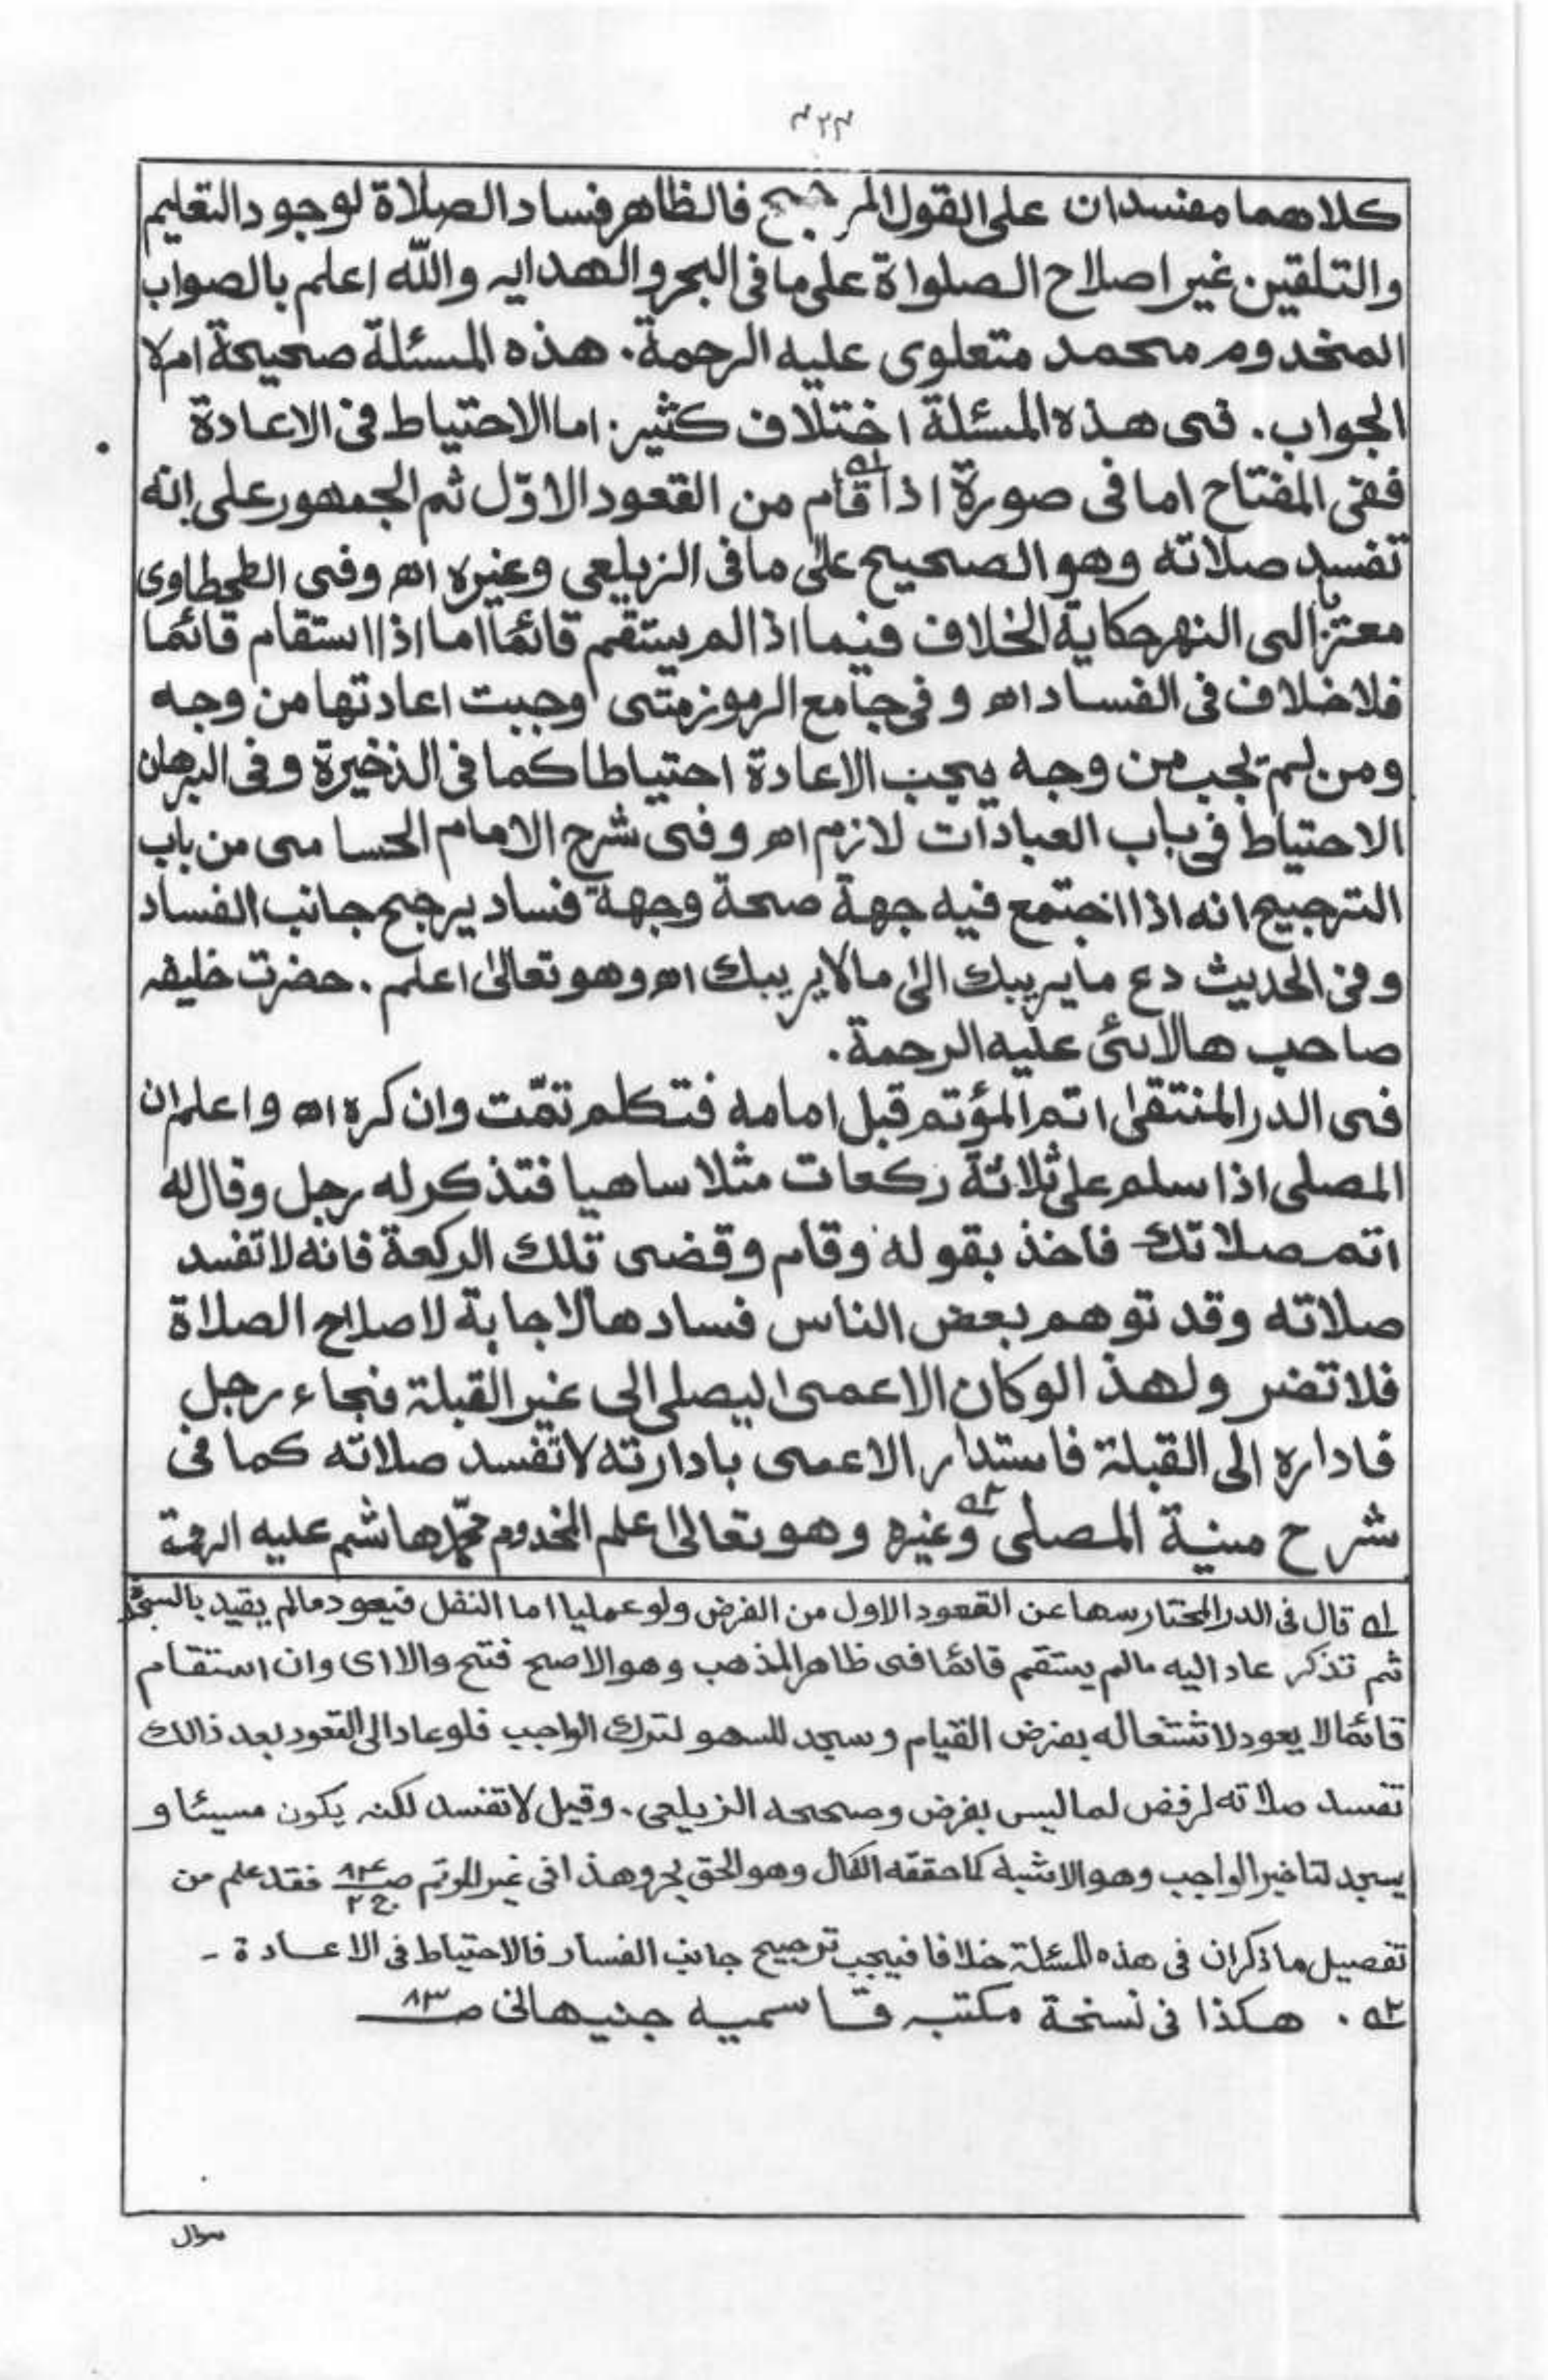 ٤٢٣
كلاهما مفسدان على القول المرجح فالظاهر فساد الصلاة لوجود التعليم
والتلقين غير اصلاح الصلواة على ما فى البحر والهدايه والله اعلم بالصواب
المخدوم محمد متعلوى عليه الرحمة. هذه المسئلة صحيحة ام لا
الجواب. فى هذه المسئلة اختلاف كثير. اما الاحتياط فى الاعادة
ففى المفتاح اما فى صورة اذا قام من القعود الاوّل ثم الجمهور على انه
تفسد صلاته وهو الصحيح علىٰ ما فى الزيلعى وغيره اھ وفى الطحطاوى
معتزيا الى النهر حكاية الخلاف فيما اذا لم يستقم قائما اما اذا استقام قائما
فلا خلاف فى الفساد اھ و فى جامع الرموز متى وجبت اعادتها من وجه
ومن لم تجب من وجه يجب الاعادة احتياطا كما فى الذخيرة وفى البرهان
الاحتياط فى باب العبادات لازم اھ وفى شرح الامام الحسامى من باب
الترجيح انه اذا اجتمع فيه جهة صحة وجهة فساد يرجح جانب الفساد
وفى الحديث دع ما يريبك الى ما لا يريبك اھ وهو تعالىٰ اعلم. حضرت خليفه
صاحب هالائى عليه الرحمة.
فى الدر المنتقىٰ اتم المؤتم قبل امامه فتكلم تمّت وان كره اھ واعلم ان
المصلى اذا سلم على ثلاثة ركعات مثلا ساهيا فتذكر له رجل وقال له
اتم صلاتك فاخذ بقوله وقام وقضى تلك الركعة فانه لا تفسد
صلاته وقد توهم بعض الناس فسادها الاجابة لاصلاح الصلاة
فلا تضر ولهذا لوكان الاعمى ليصلى الى غير القبلة فجاء رجل
فاداره الى القبلة فاستدار الاعمى بادارته لا تفسد صلاته كما فى
شرح منية المصلى ٢ه وغيره وهو تعالىٰ اعلم المخدوم محمّد هاشم عليه الرحمة
١ه قال فى الدر المختار سها عن القعود الاول من الفرض ولو عمليا اما النفل فيعود مالم يقيد بالسجدة
ثم تذكر عاد اليه مالم يستقم قائما فى ظاهر المذهب وهو الاصح فتح والا اى وان استقام
قائما لا يعود لاشتغاله بفرض القيام وسجد للسهو لترك الواجب فلو عاد الى القعود بعد ذالك
تفسد صلاته لرفض لما ليس بفرض وصححه الزيلعى. وقيل لا تفسد لكنه يكون مسيئا و
يسجد لتاخير الواجب وهو الاشبه كما حققه الكمال وهو الحق بحر وهذا فى غير المؤتم صـ ج ٢ فقد علم من
تفصيل ما ذكر ان فى هذه المسئلة خلافا فيجب ترجيح جانب الفساد فالاحتياط فى الاعادة -
٢ه . هكذا فى نسخة مكتبه قاسميه جنيهانى صـ ٨٣
سوال